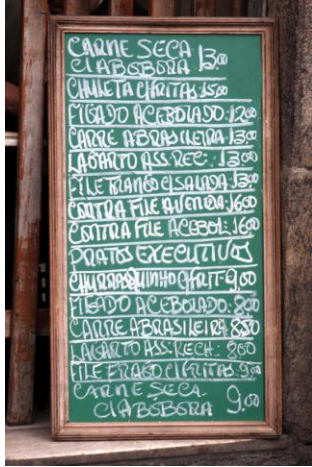 CARNE SECA
C/ABOBORA 13.00
CHULETA C/FRITAS 15.00
FIGADO ACEBOLADO: 12.00
CARRE ABRASILEIRA 13.00
LAGARTO ASS. REC: 13.00
FILE FRANGO C/SALADA: 13.00
CONTRA FILE AVENIDA: 16.00
CONTRA FILE ACEBOL: 16.00
PRATOS EXECUTIVOS
CHURRASQUINHO C/FRIT- 9.00
FIGADO ACEBOLADO: 8.00
CARRE ABRASILEIRA 8.50
LAGARTO ASS. RECH: 8.00
FILE FRAGO C/FRITAS 9.00
CARNE SECA
C/ABOBORA 9.00